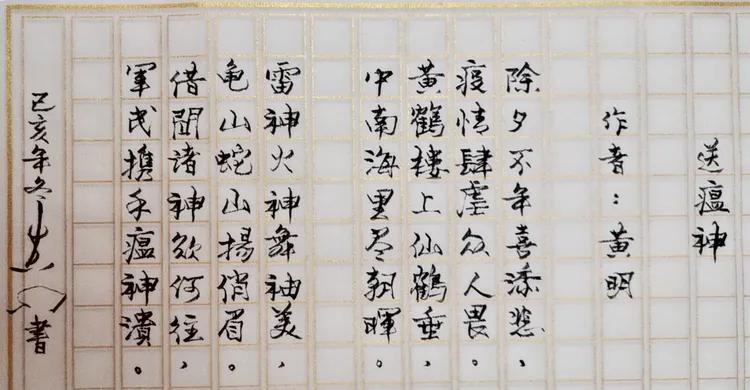 送瘟神
作者：黃明
除夕不年喜添悲，
疫情肆虐众人畏。
黃鶴樓上仙鶴垂，
中南海里尽朝暉。
雷神火神舞袖美，
亀山蛇山揚俏眉。
借問諸神欲何往，
軍民携手瘟神潰。
己亥年冬書